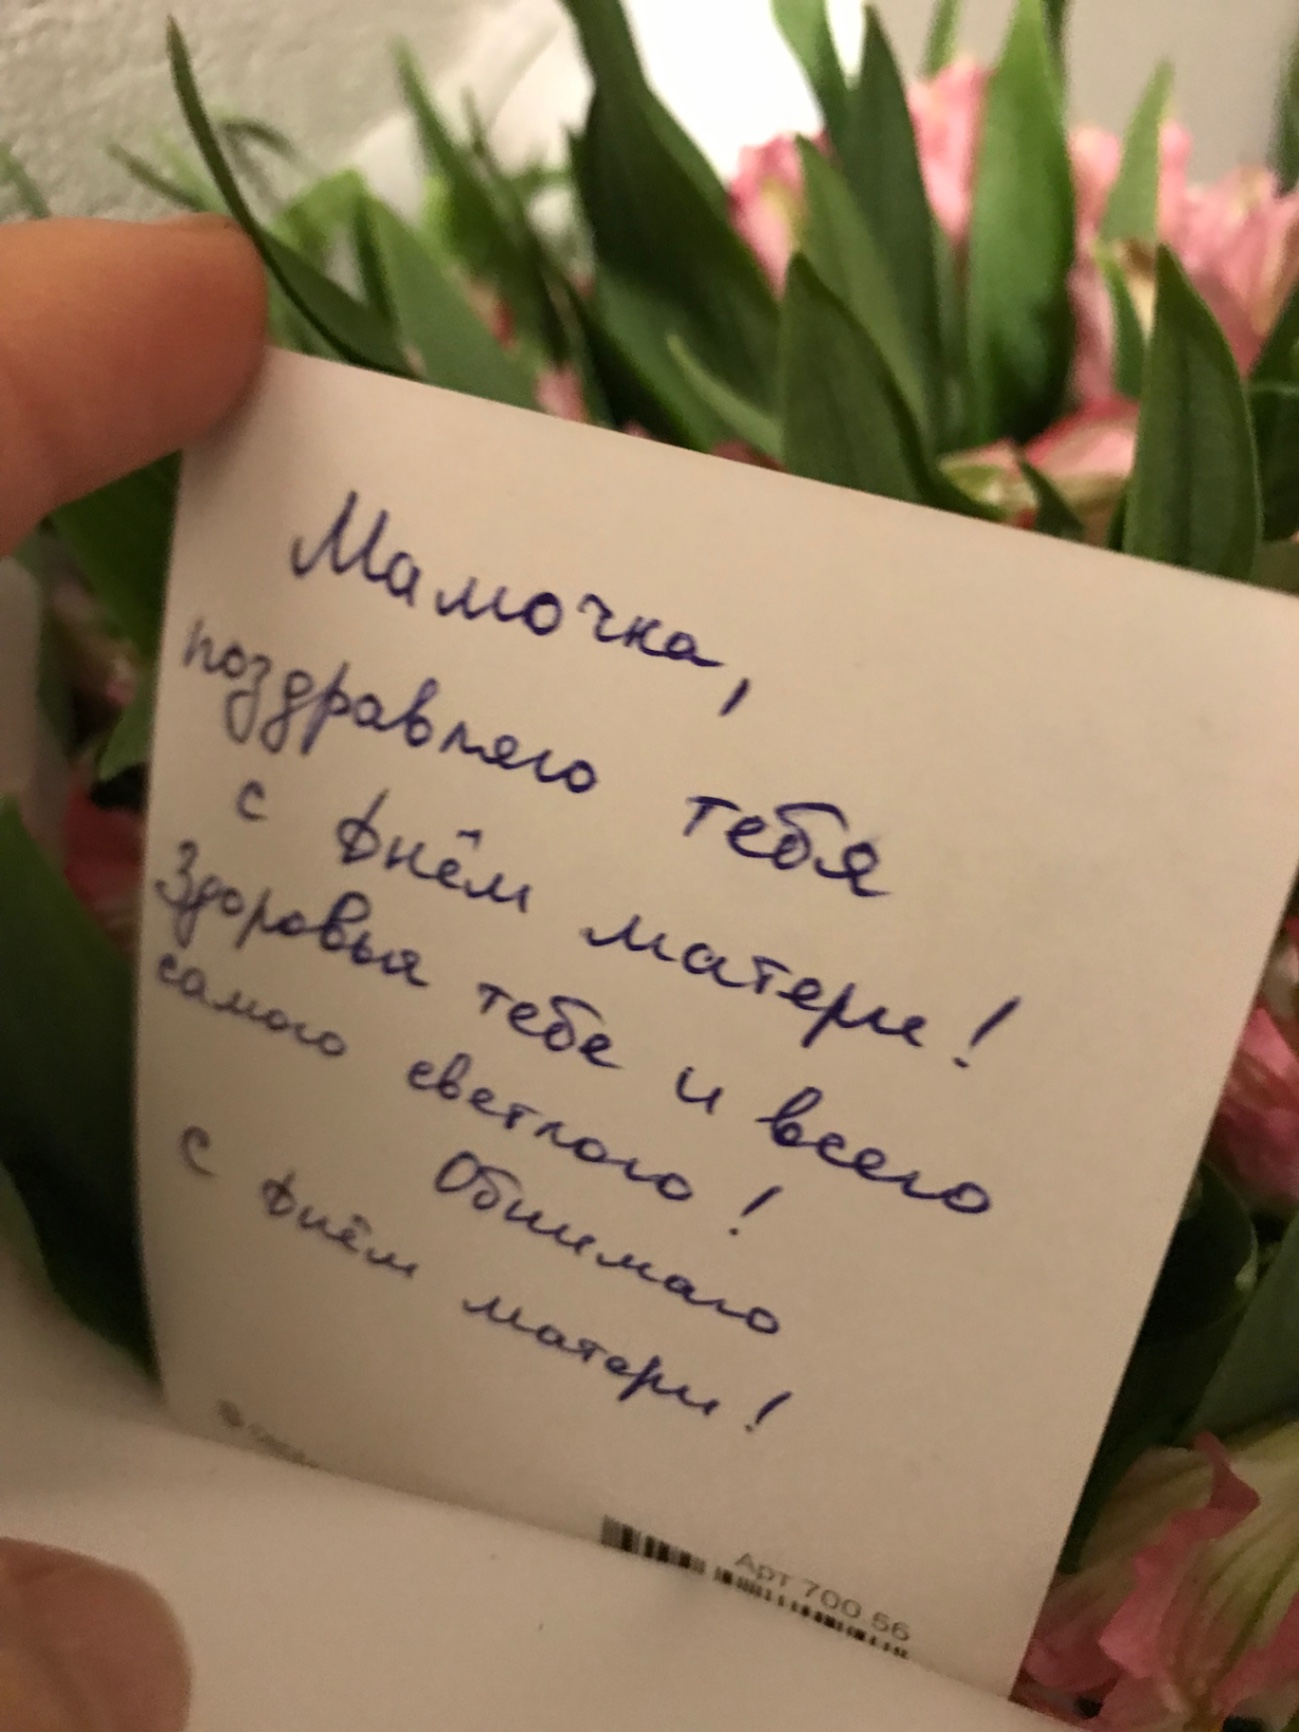 Мамочка,
поздравляю тебя
с днём матери!
Здоровья тебе и всего
самого светлого!
Обнимаю
с днём матери!
Арт 700.56